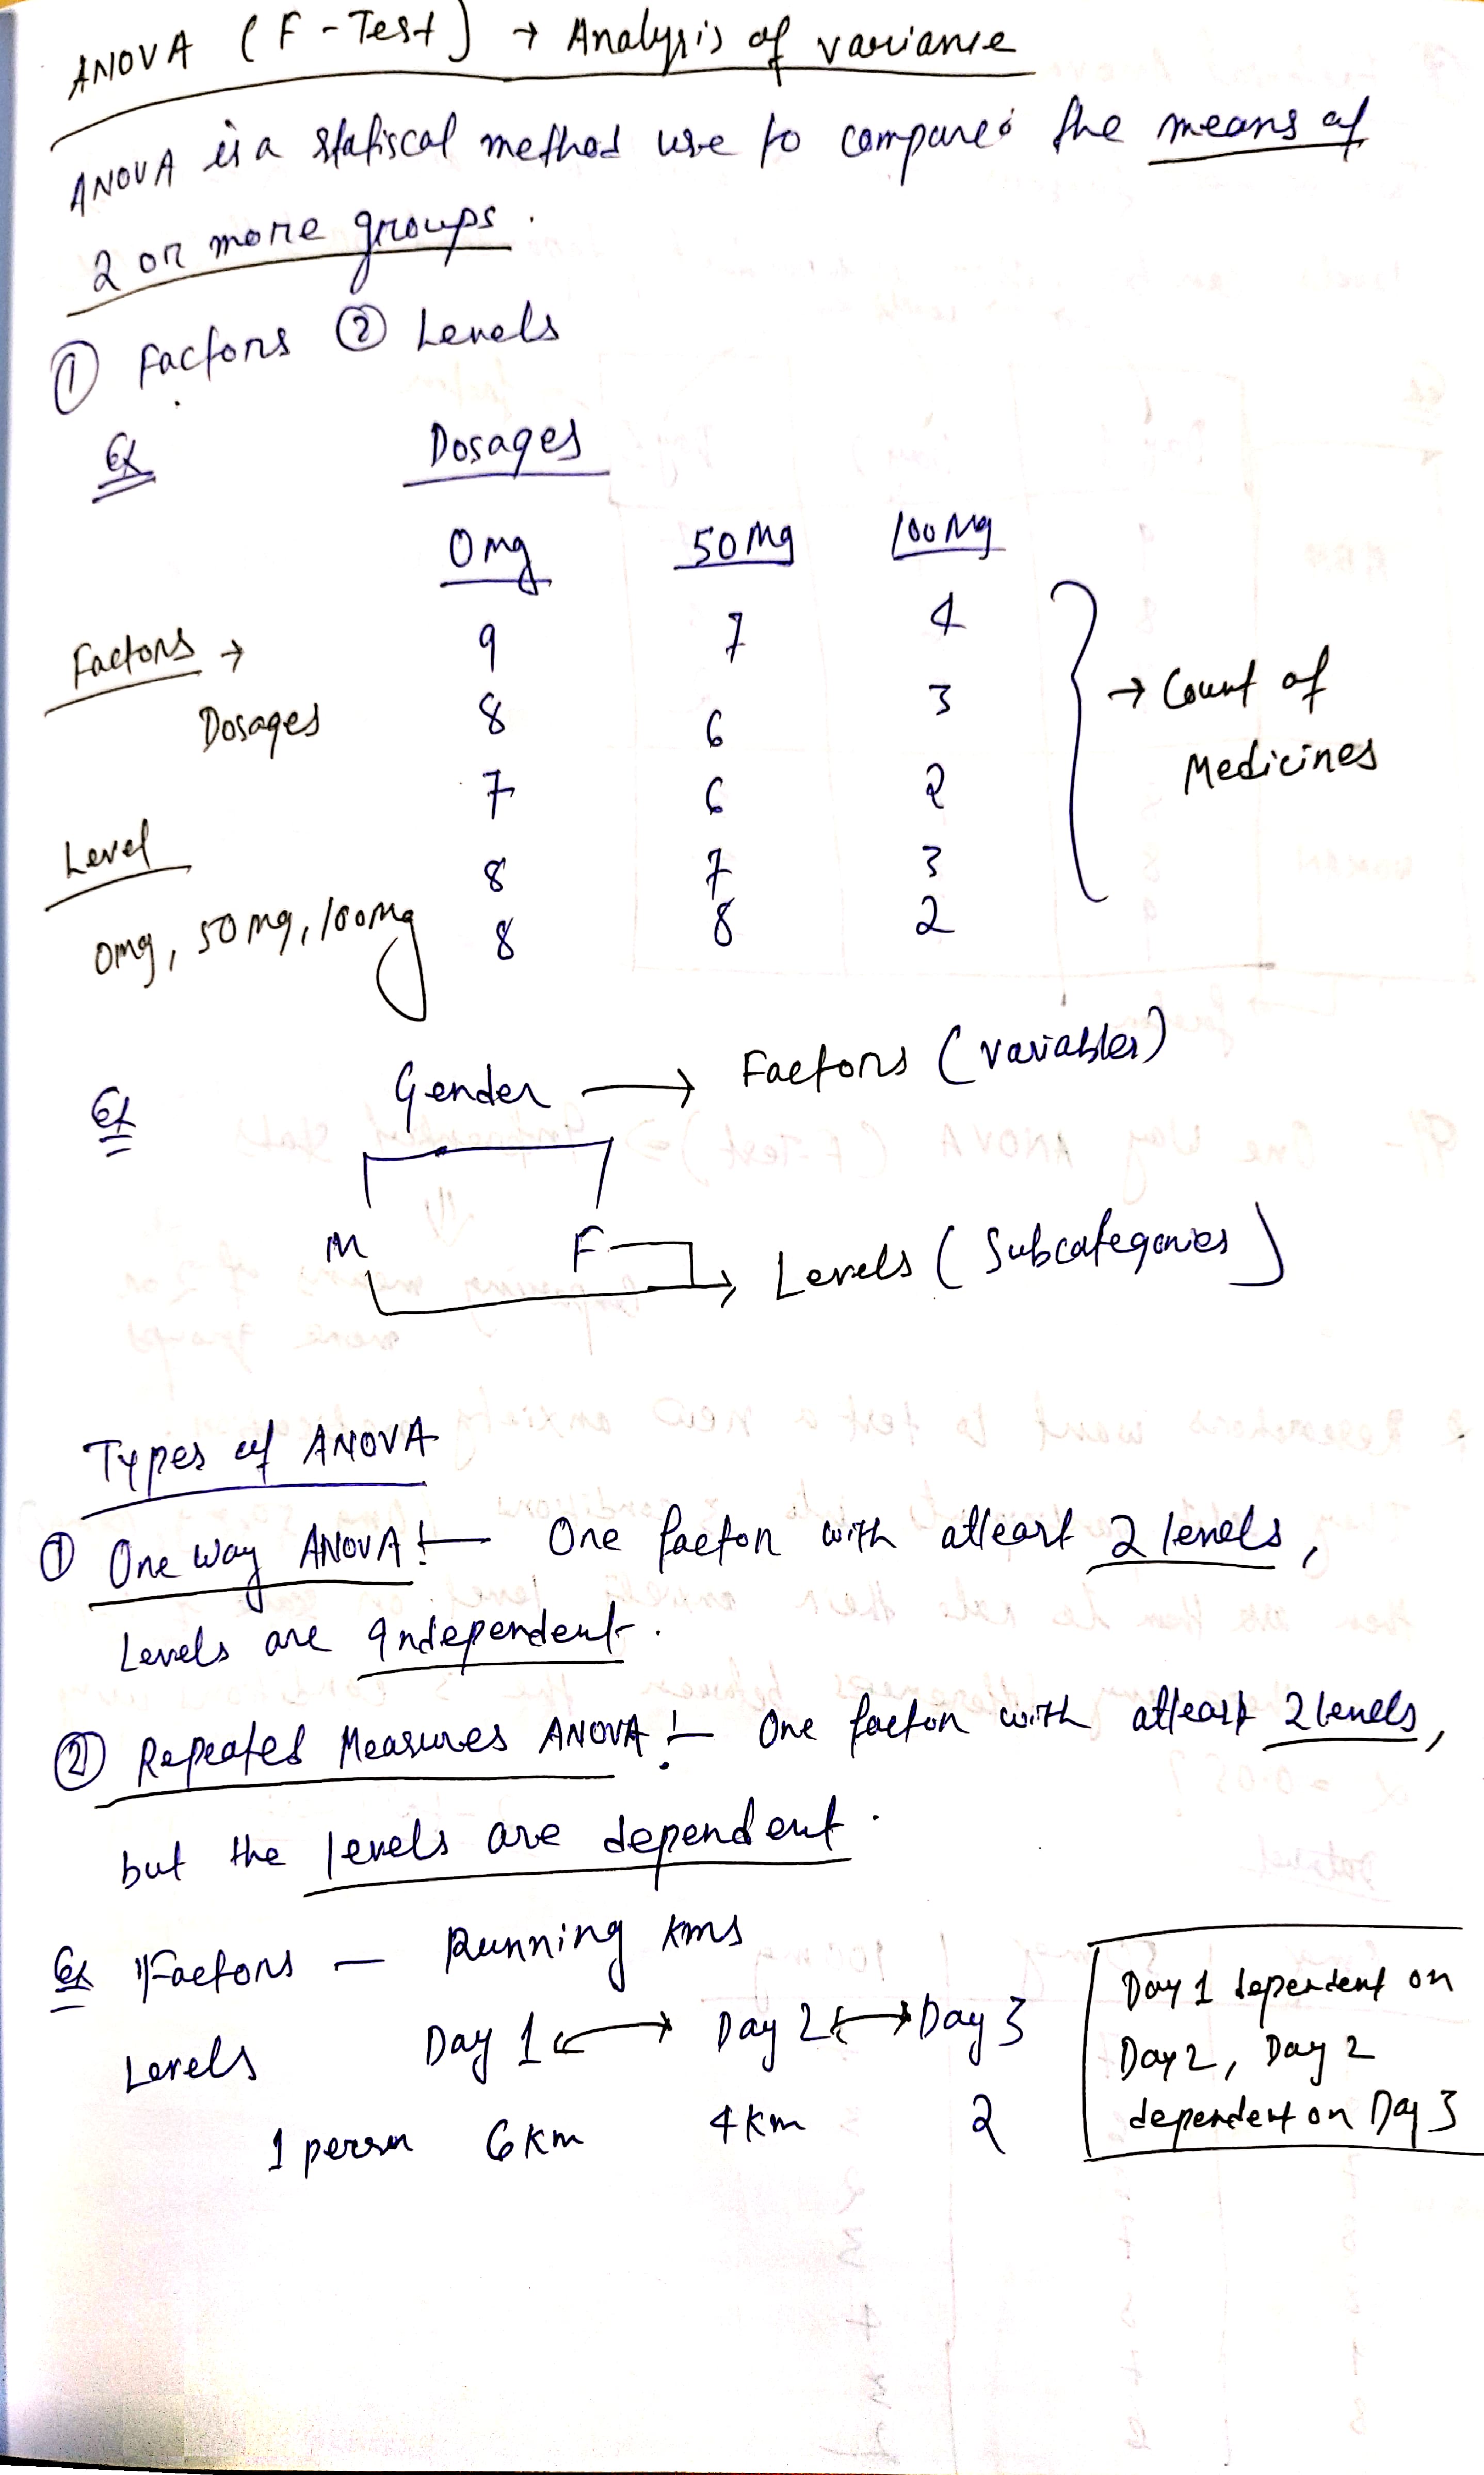 ANOVA (F-Test) → Analysis of variance
ANOVA is a statiscal method use to compare the means of
2 or more groups.
① Factors ② Levels
Ex Dosages
0mg 50Mg 100Mg
Factors → 9 7 4
Dosages 8 6 3 → Count of
7 6 2 Medicines
Level 8 7 3
0mg, 50mg, 100Mg 8 8 2
Ex Gender → Factors (variables)
M F → Levels (Subcategories)
Types of ANOVA
① One Way ANOVA :- One factor with atleast 2 levels,
Levels are Independent.
② Repeated Measures ANOVA :- One factor with atleast 2 levels,
but the levels are dependent.
Ex Factors - Running kms
Levels Day 1 ↔ Day 2 ↔ Day 3
1 person 6km 4km 2
Day 1 dependent on
Day 2, Day 2
dependent on Day 3